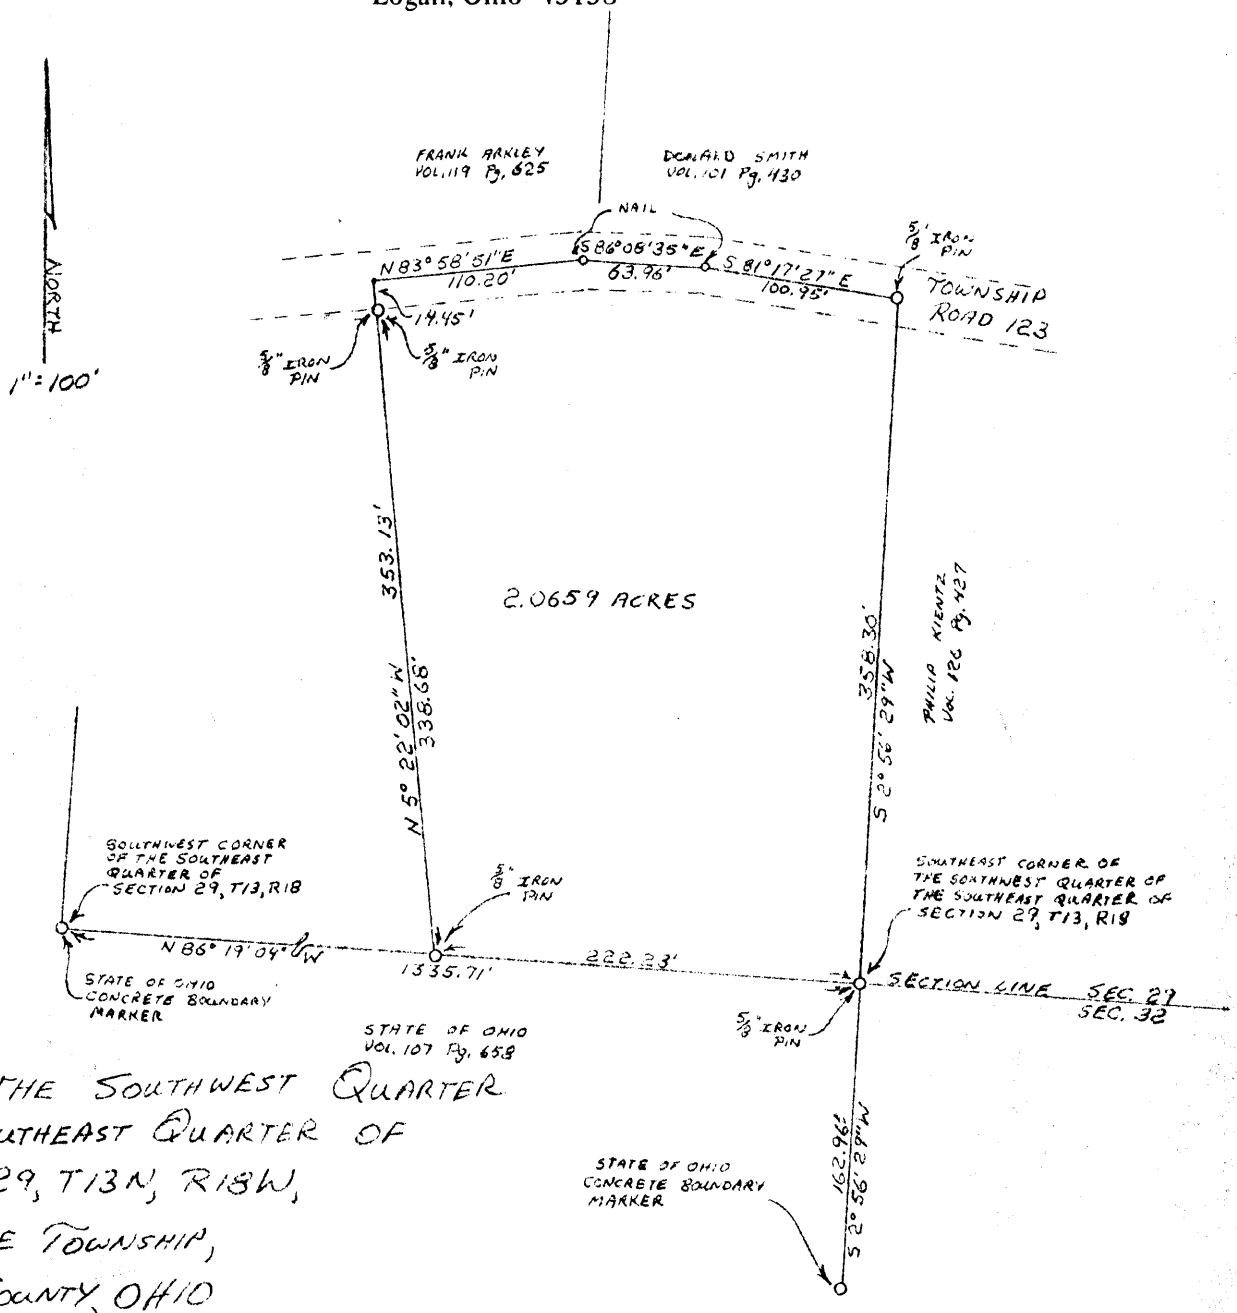 Logan, Ohio 43138
FRANK ARKLEY
VOL. 119 Pg. 625
DONALD SMITH
VOL. 101 Pg. 430
NAIL
5/8" IRON
PIN
N 83° 58' 51" E
110.20'
S 86° 08' 35" E
63.96'
S 81° 17' 27" E
100.95'
TOWNSHIP
ROAD 123
NORTH
1"=100'
14.45'
5/8" IRON
PIN
5/8" IRON
PIN
353.13'
N 5° 22' 02" W
338.68'
2.0659 ACRES
358.30'
S 2° 56' 29" W
PHILIP KIENTZ
VOL. 126 Pg. 427
SOUTHWEST CORNER
OF THE SOUTHEAST
QUARTER OF
SECTION 29, T13, R18
5/8" IRON
PIN
SOUTHEAST CORNER OF
THE SOUTHWEST QUARTER OF
THE SOUTHEAST QUARTER OF
SECTION 29, T13, R18
N 86° 19' 04" W
1335.71'
222.23'
SECTION LINE SEC. 29
SEC. 32
STATE OF OHIO
CONCRETE BOUNDARY
MARKER
5/8" IRON
PIN
STATE OF OHIO
VOL. 107 Pg. 658
THE SOUTHWEST QUARTER
UTHEAST QUARTER OF
29, T13N, R18W,
E TOWNSHIP,
OUNTY, OHIO
STATE OF OHIO
CONCRETE BOUNDARY
MARKER
162.96'
S 2° 56' 29" W